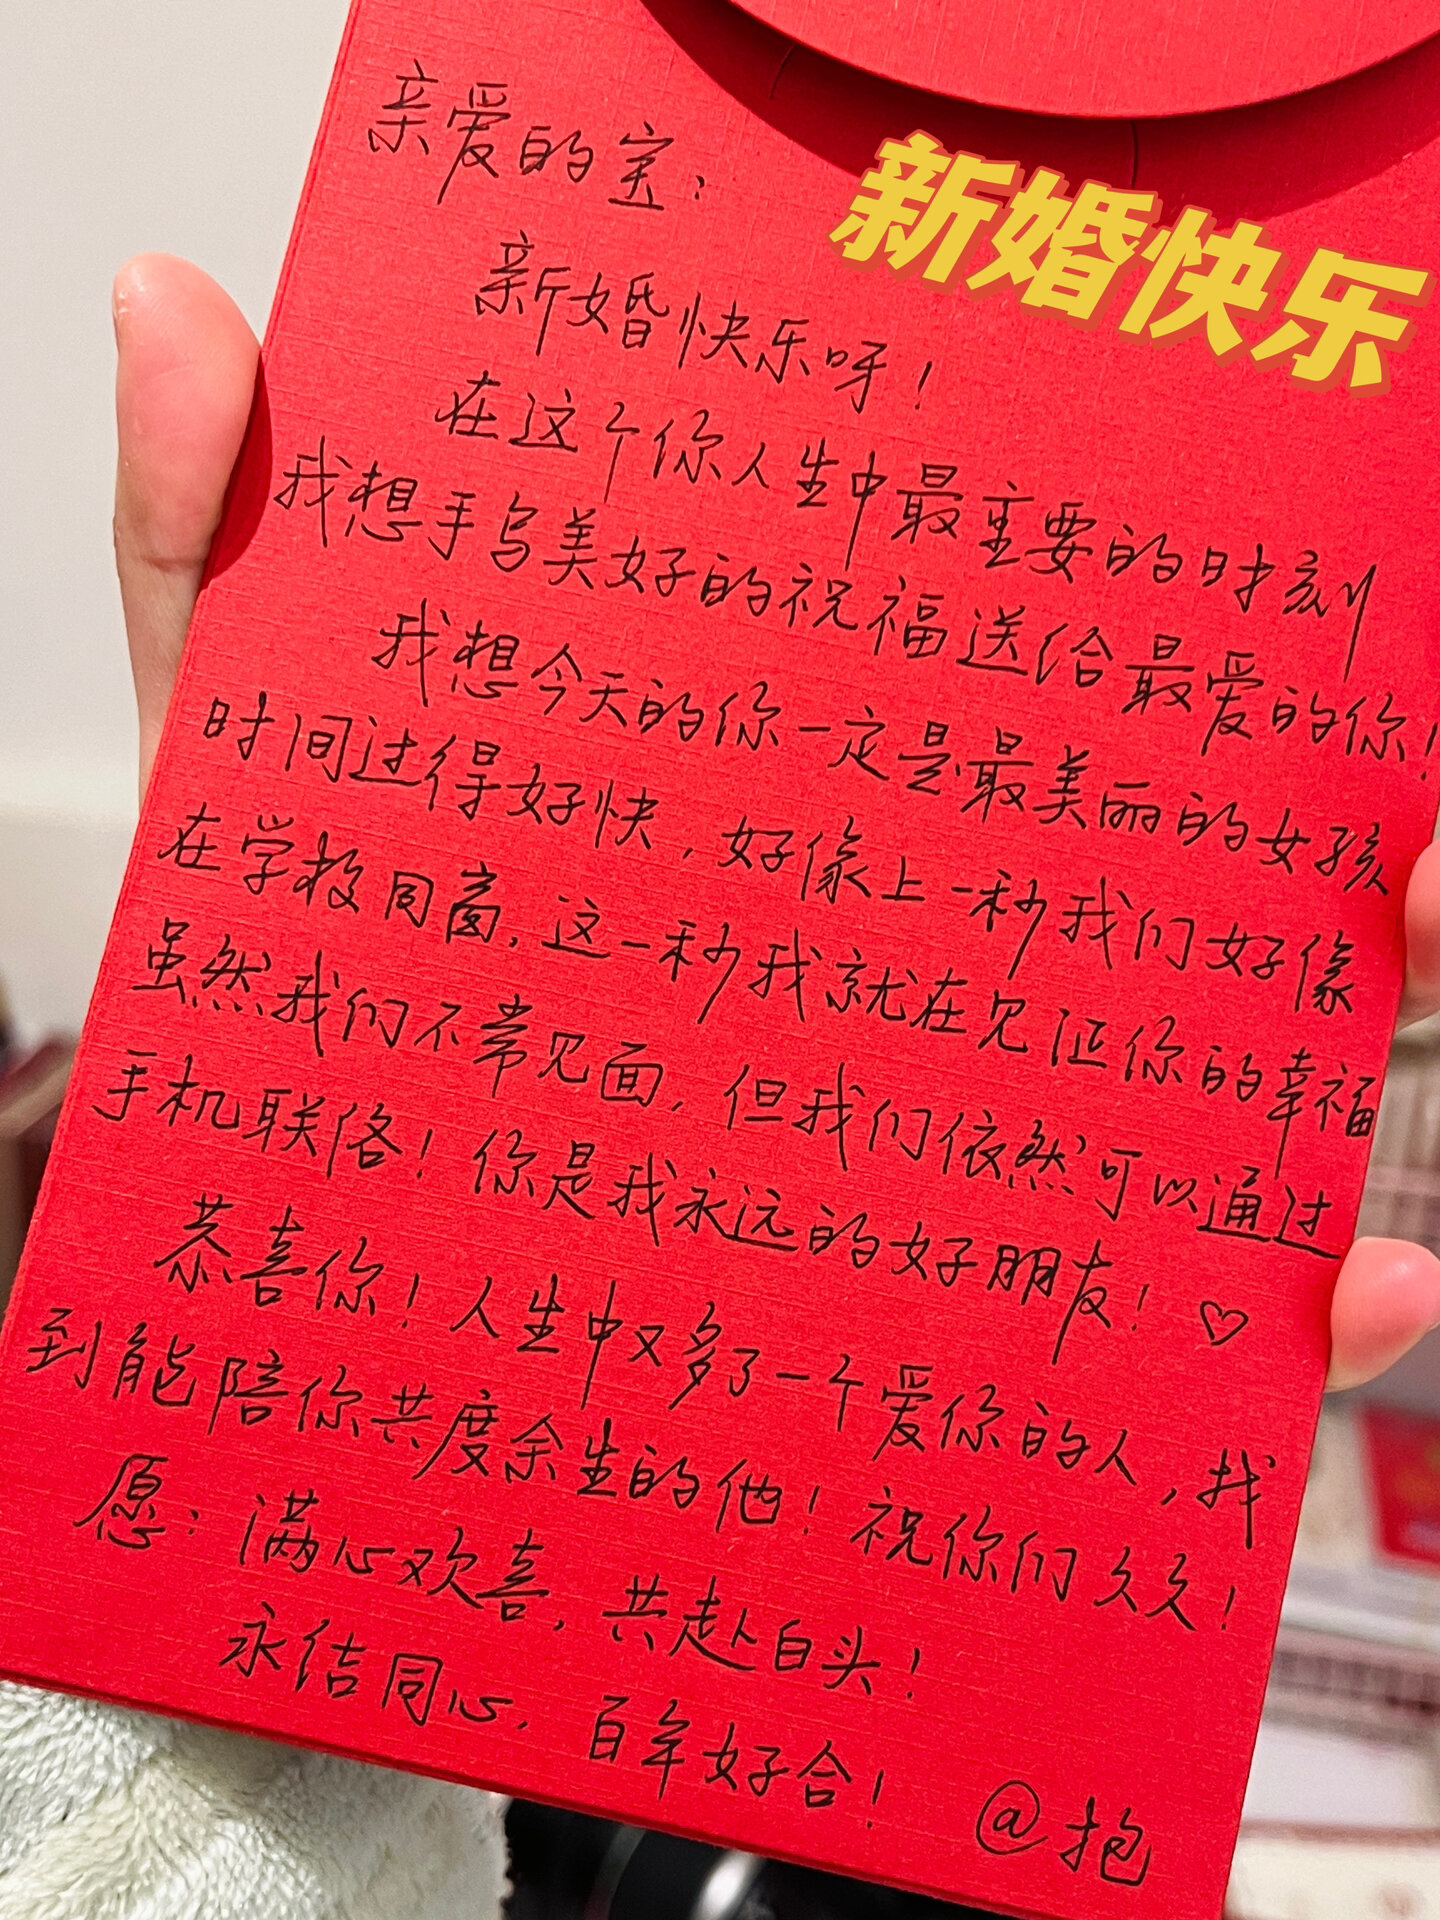 亲爱的宝：
新婚快乐
新婚快乐呀！
在这个你人生中最重要的时刻
我想手写美好的祝福送给最爱的你！
我想今天的你一定是最美丽的女孩
时间过得好快，好像上一秒我们好像
在学校同窗，这一秒我就在见证你的幸福
虽然我们不常见面，但我们依然可以通过
手机联络！你是我永远的好朋友！♡
恭喜你！人生中又多了一个爱你的人，找
到能陪你共度余生的他！祝你们久久！
愿：满心欢喜，共赴白头！
永结同心，百年好合！
@抱